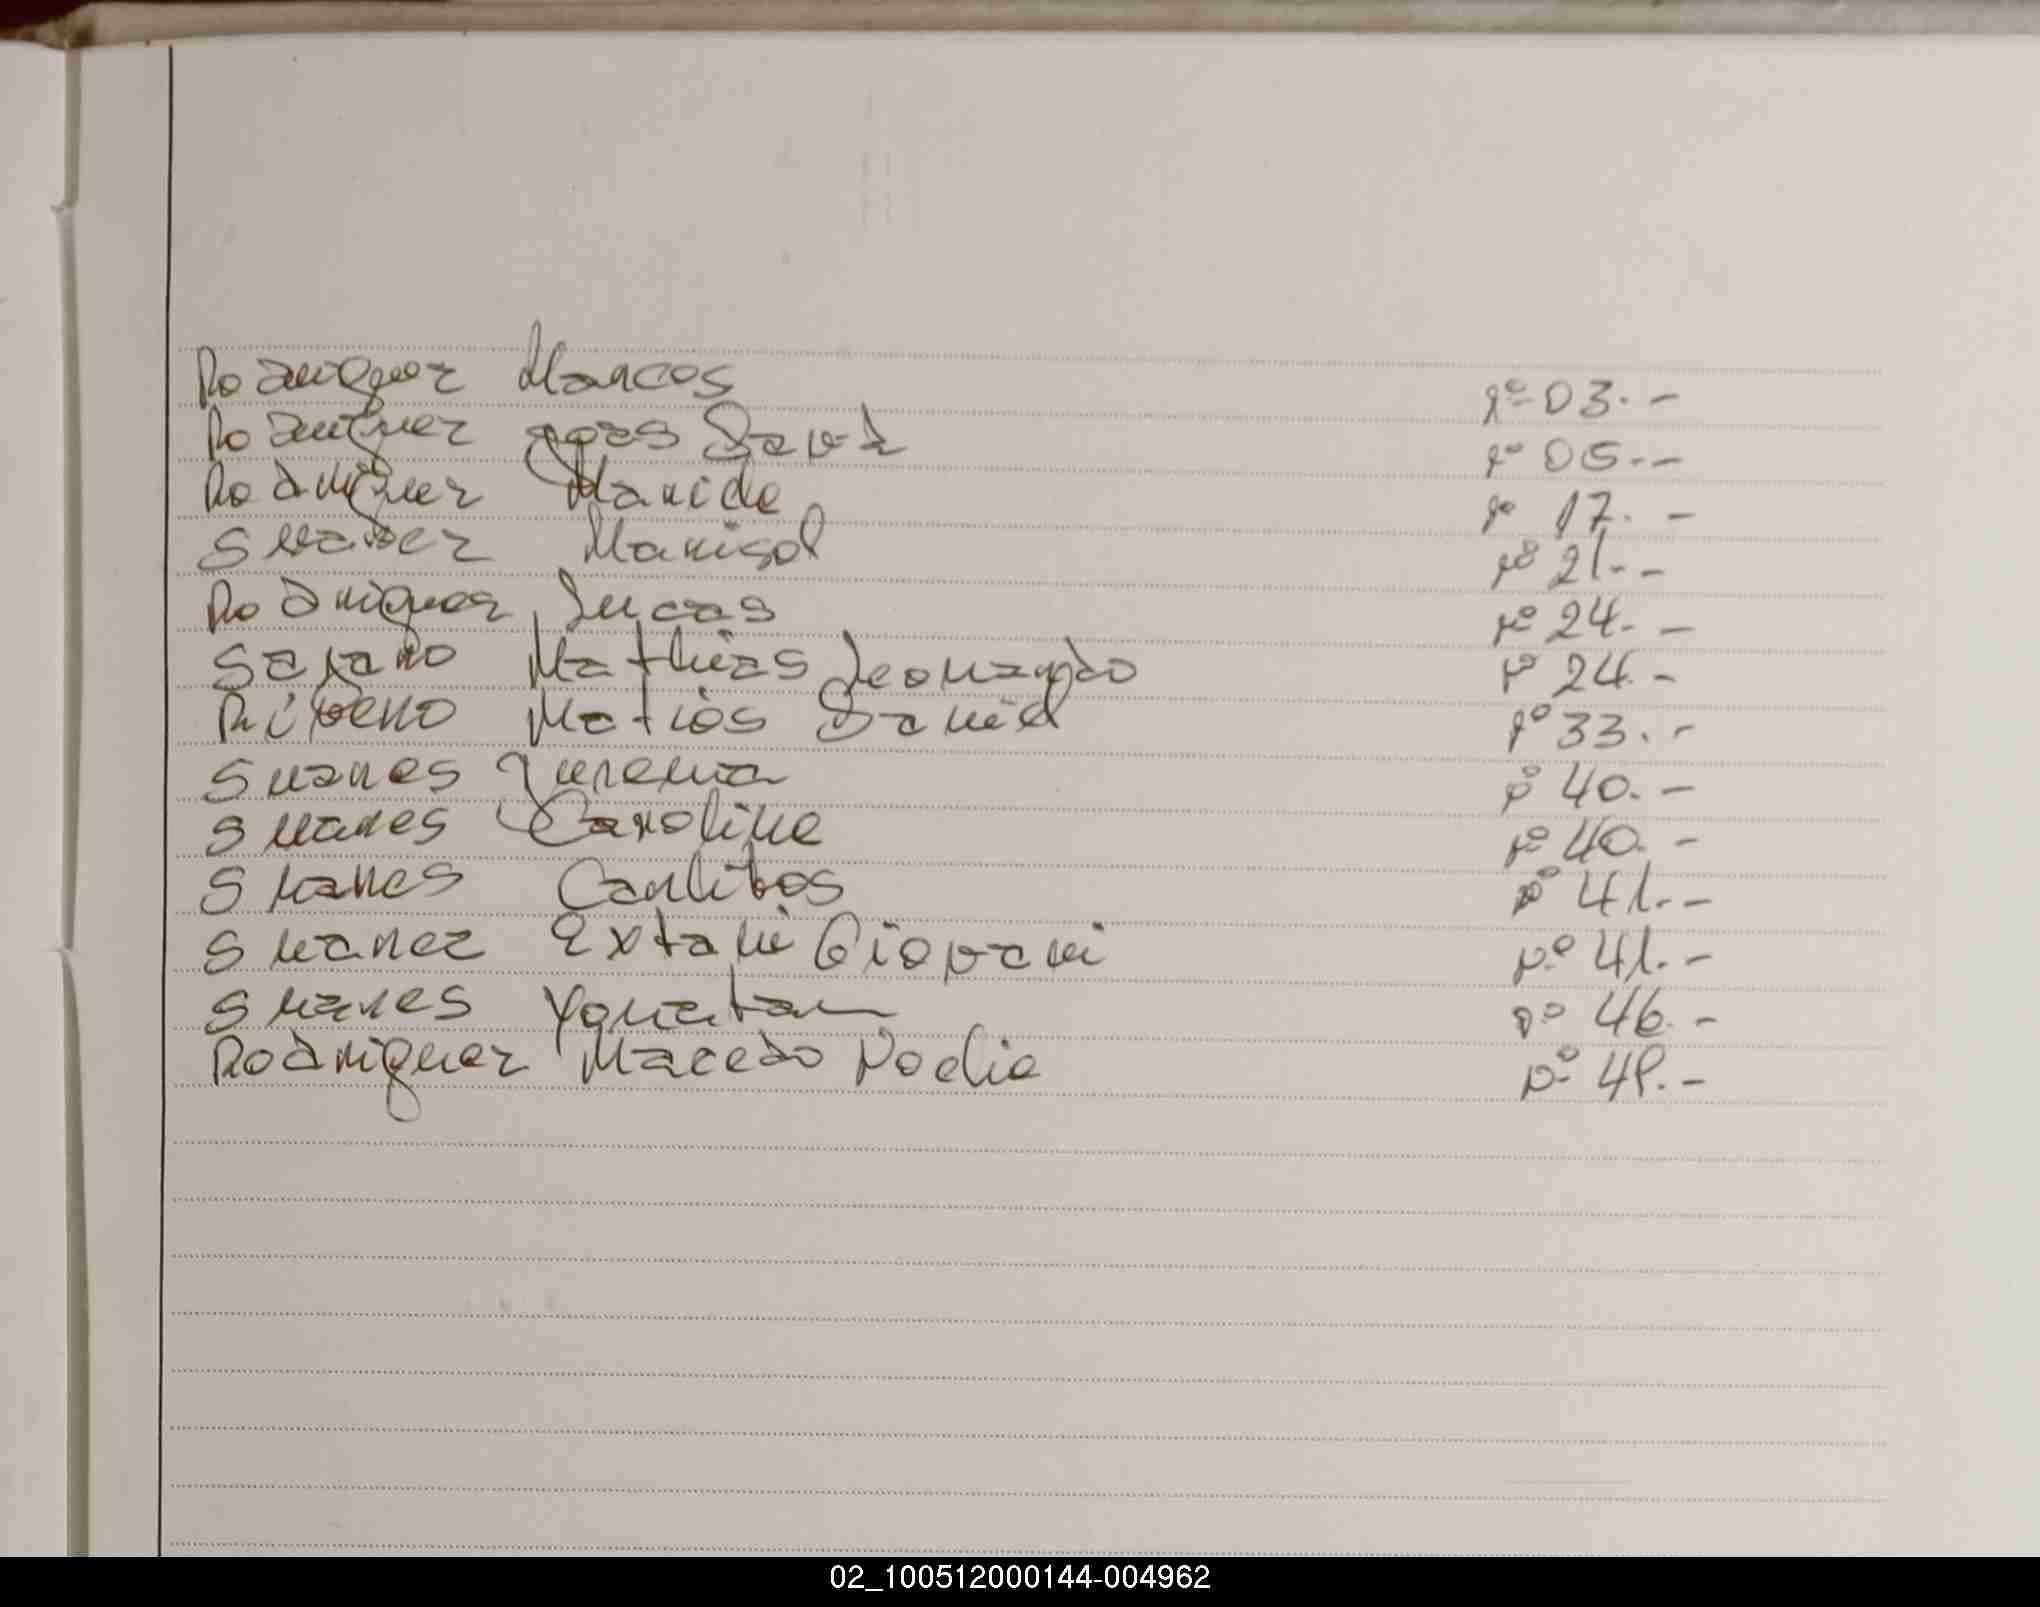 Rodriguez Marcos Nº 03.-
Rodriguez Jonas David Nº 05.-
Rodriguez Maride Nº 17.-
Suarez Marisol Nº 21.-
Rodriguez Lucas Nº 24.-
Sayano Mathias Leonardo Nº 24.-
Ribeiro Matias Daniel Nº 33.-
Suares Yurema Nº 40.-
Suares Caroline Nº 40.-
Suares Carlitos Nº 41.-
Suarez Giovani Nº 41.-
Suares Yonatan Nº 46.-
Rodriguez Macedo Noelia Nº 48.-
02_100512000144-004962